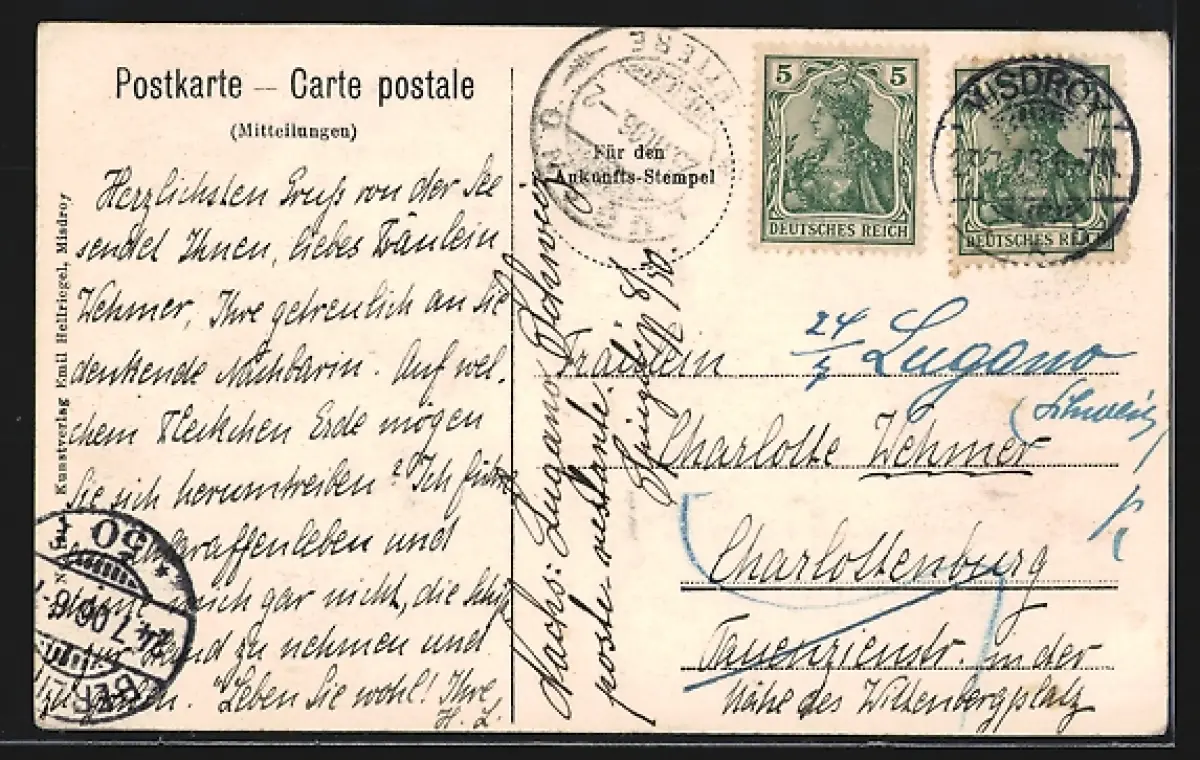 Postkarte — Carte postale
(Mitteilungen)
Herzlichsten Gruß von der See
sendet Ihnen, liebes Fräulein
Wehmer, Ihre getreulich an Sie
denkende Nachbarin. Auf wel-
chem Fleckchen Erde mögen
Sie sich herumtreiben? Ich führe
Schlaraffenleben und
mich gar nicht, die
zur Hand zu nehmen und
Leben Sie wohl! Ihre
H. L.
Kunstverlag Emil Hellriegel, Misdroy
50
7.06
BER
Für den
Ankunfts-Stempel
5 5
DEUTSCHES REICH
MISDROY
DEUTSCHES REICH
24/7 Lugano
(Schweiz)
Fräulein
Charlotte Wehmer
Charlottenburg
Tauenzienstr. in der
Nähe des Wittenbergplatz
Nachs: Lugano Schweiz
poste restante.